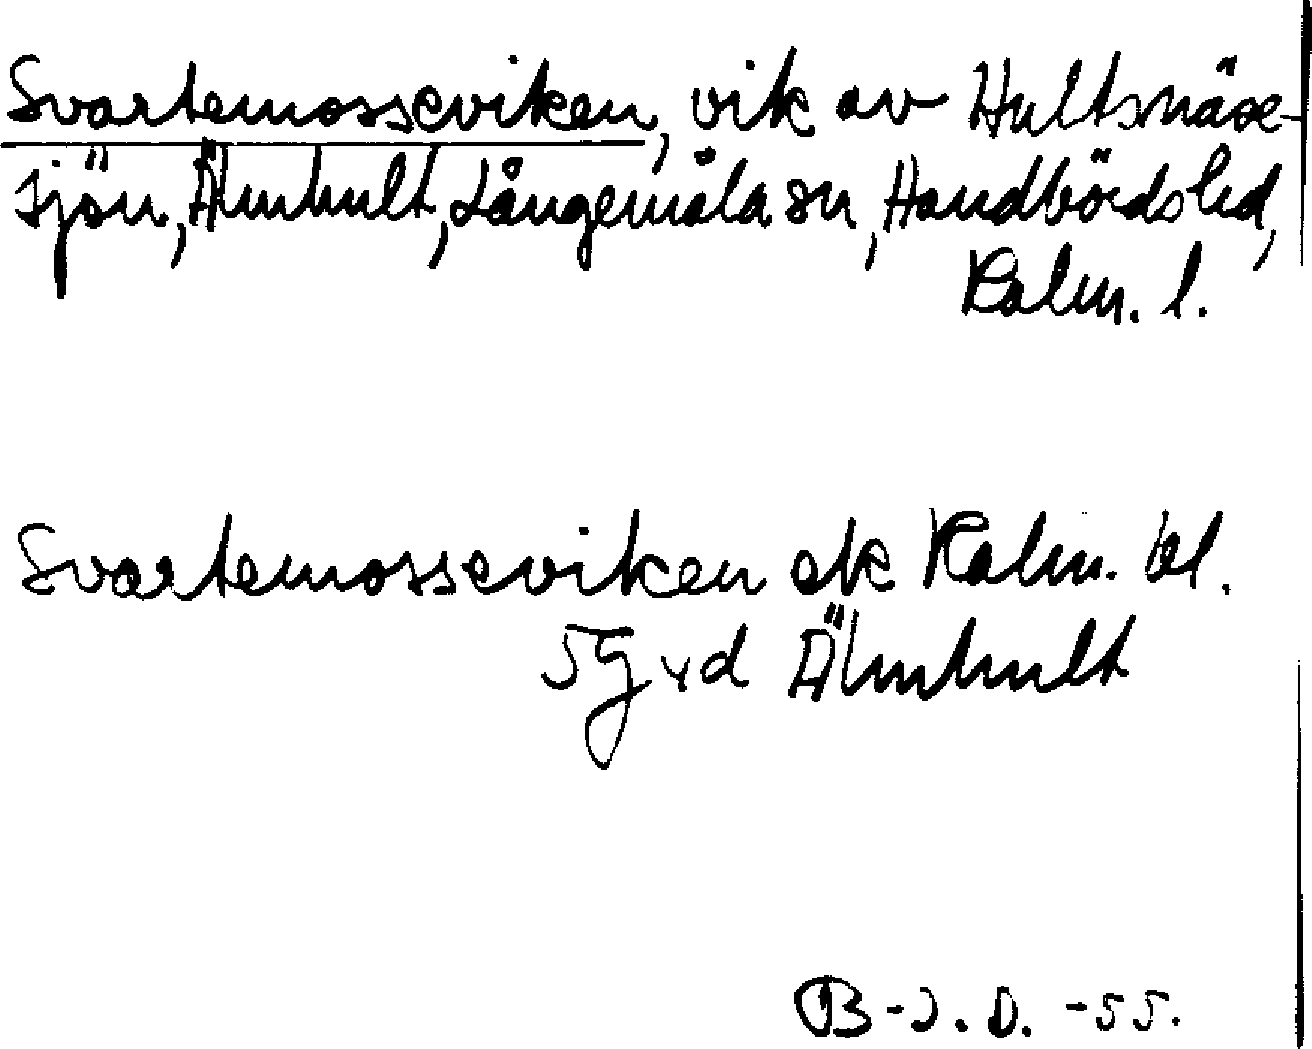 Svartemosseviken, vik av Hultsnäse-
sjön, Älmhult, Långemåla sn, Handbörds hd,
Kalm. l.
Svartemosseviken ek Kalm. bl.
5g vd Älmhult
B-J. D. -55.